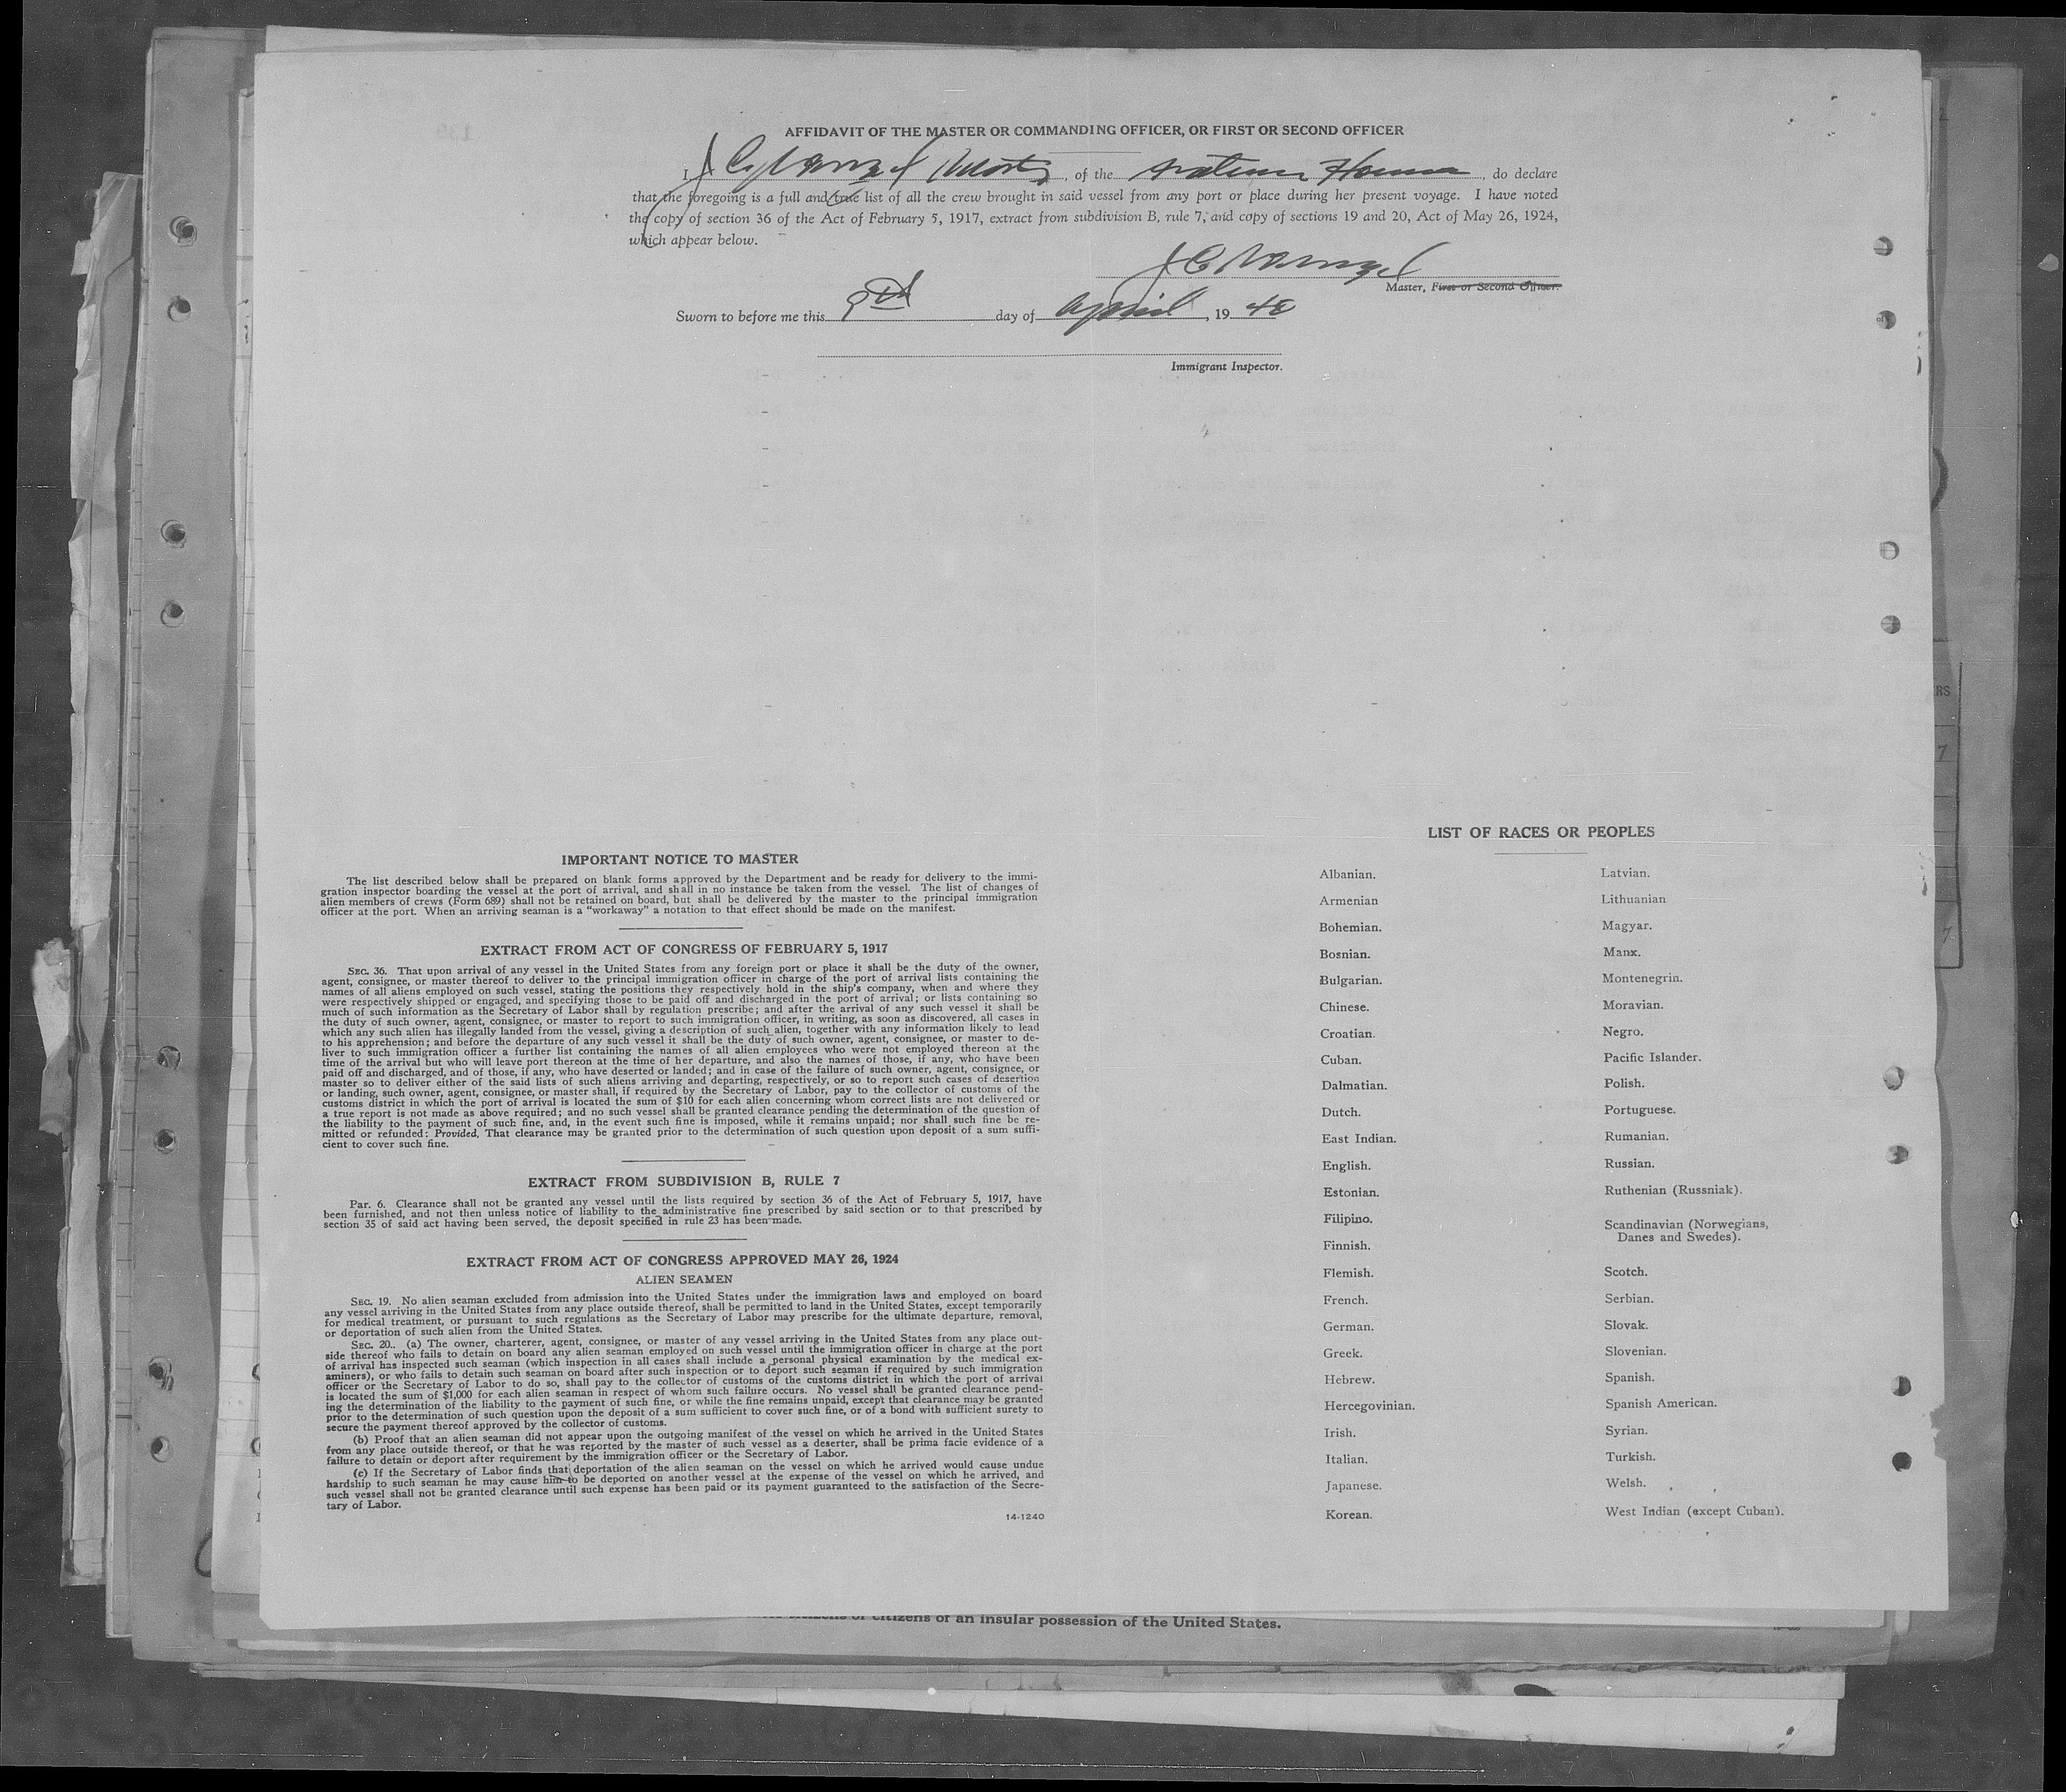 AFFIDAVIT OF THE MASTER OR COMMANDING OFFICER, OR FIRST OR SECOND OFFICER
I, of the, do declare
that the foregoing is a full and true list of all the crew brought in said vessel from any port or place during her present voyage. I have noted
the copy of section 36 of the Act of February 5, 1917, extract from subdivision B, rule 7, and copy of sections 19 and 20, Act of May 26, 1924,
which appear below.
Master, First or Second Officer.
Sworn to before me this day of April, 19
Immigrant Inspector.
IMPORTANT NOTICE TO MASTER
The list described below shall be prepared on blank forms approved by the Department and be ready for delivery to the immi-
gration inspector boarding the vessel at the port of arrival, and shall in no instance be taken from the vessel. The list of changes of
alien members of crews (Form 689) shall not be retained on board, but shall be delivered by the master to the principal immigration
officer at the port. When an arriving seaman is a "workaway" a notation to that effect should be made on the manifest.
EXTRACT FROM ACT OF CONGRESS OF FEBRUARY 5, 1917
SEC. 36. That upon arrival of any vessel in the United States from any foreign port or place it shall be the duty of the owner,
agent, consignee, or master thereof to deliver to the principal immigration officer in charge of the port of arrival lists containing the
names of all aliens employed on such vessel, stating the positions they respectively hold in the ship's company, when and where they
were respectively shipped or engaged, and specifying those to be paid off and discharged in the port of arrival; or lists containing so
much of such information as the Secretary of Labor shall by regulation prescribe; and after the arrival of any such vessel it shall be
the duty of such owner, agent, consignee, or master to report to such immigration officer, in writing, as soon as discovered, all cases in
which any such alien has illegally landed from the vessel, giving a description of such alien, together with any information likely to lead
to his apprehension; and before the departure of any such vessel it shall be the duty of such owner, agent, consignee, or master to de-
liver to such immigration officer a further list containing the names of all alien employees who were not employed thereon at the
time of the arrival but who will leave port thereon at the time of her departure, and also the names of those, if any, who have been
paid off and discharged, and of those, if any, who have deserted or landed; and in case of the failure of such owner, agent, consignee, or
master so to deliver either of the said lists of such aliens arriving and departing, respectively, or so to report such cases of desertion
or landing, such owner, agent, consignee, or master shall, if required by the Secretary of Labor, pay to the collector of customs of the
customs district in which the port of arrival is located the sum of $10 for each alien concerning whom correct lists are not delivered or
a true report is not made as above required; and no such vessel shall be granted clearance pending the determination of the question of
the liability to the payment of such fine, and, in the event such fine is imposed, while it remains unpaid; nor shall such fine be re-
mitted or refunded: Provided, That clearance may be granted prior to the determination of such question upon deposit of a sum suffi-
cient to cover such fine.
EXTRACT FROM SUBDIVISION B, RULE 7
Par. 6. Clearance shall not be granted any vessel until the lists required by section 36 of the Act of February 5, 1917, have
been furnished, and not then unless notice of liability to the administrative fine prescribed by said section or to that prescribed by
section 35 of said act having been served, the deposit specified in rule 23 has been made.
EXTRACT FROM ACT OF CONGRESS APPROVED MAY 26, 1924
ALIEN SEAMEN
SEC. 19. No alien seaman excluded from admission into the United States under the immigration laws and employed on board
any vessel arriving in the United States from any place outside thereof, shall be permitted to land in the United States, except temporarily
for medical treatment, or pursuant to such regulations as the Secretary of Labor may prescribe for the ultimate departure, removal,
or deportation of such alien from the United States.
SEC. 20. (a) The owner, charterer, agent, consignee, or master of any vessel arriving in the United States from any place out-
side thereof who fails to detain on board any alien seaman employed on such vessel until the immigration officer in charge at the port
of arrival has inspected such seaman (which inspection in all cases shall include a personal physical examination by the medical ex-
aminers), or who fails to detain such seaman on board after such inspection or to deport such seaman if required by such immigration
officer or the Secretary of Labor to do so, shall pay to the collector of customs of the customs district in which the port of arrival
is located the sum of $1,000 for each alien seaman in respect of whom such failure occurs. No vessel shall be granted clearance pend-
ing the determination of the liability to the payment of such fine, or while the fine remains unpaid, except that clearance may be granted
prior to the determination of such question upon the deposit of a sum sufficient to cover such fine, or of a bond with sufficient surety to
secure the payment thereof approved by the collector of customs.
(b) Proof that an alien seaman did not appear upon the outgoing manifest of the vessel on which he arrived in the United States
from any place outside thereof, or that he was reported by the master of such vessel as a deserter, shall be prima facie evidence of a
failure to detain or deport after requirement by the immigration officer or the Secretary of Labor.
(c) If the Secretary of Labor finds that deportation of the alien seaman on the vessel on which he arrived would cause undue
hardship to such seaman he may cause him to be deported on another vessel at the expense of the vessel on which he arrived, and
such vessel shall not be granted clearance until such expense has been paid or its payment guaranteed to the satisfaction of the Secre-
tary of Labor.
14-1240
LIST OF RACES OR PEOPLES
Albanian.
Armenian
Bohemian.
Bosnian.
Bulgarian.
Chinese.
Croatian.
Cuban.
Dalmatian.
Dutch.
East Indian.
English.
Estonian.
Filipino.
Finnish.
Flemish.
French.
German.
Greek.
Hebrew.
Hercegovinian.
Irish.
Italian.
Japanese.
Korean.
Latvian.
Lithuanian
Magyar.
Manx.
Montenegrin.
Moravian.
Negro.
Pacific Islander.
Polish.
Portuguese.
Rumanian.
Russian.
Ruthenian (Russniak).
Scandinavian (Norwegians,
Danes and Swedes).
Scotch.
Serbian.
Slovak.
Slovenian.
Spanish.
Spanish American.
Syrian.
Turkish.
Welsh.
West Indian (except Cuban).
citizens of an insular possession of the United States.